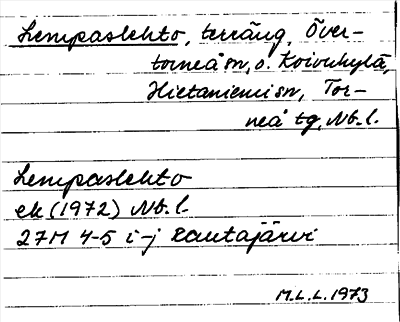 Lempaslehto, terräng, Över-
torneå sn, o. Koivukylä,
Hietaniemi sn, Tor-
neå tg, Nb. l.
Lempaslehto
ek (1972) Nb. l.
27M 4-5 i-j Rautajärvi
M.L.L. 1973